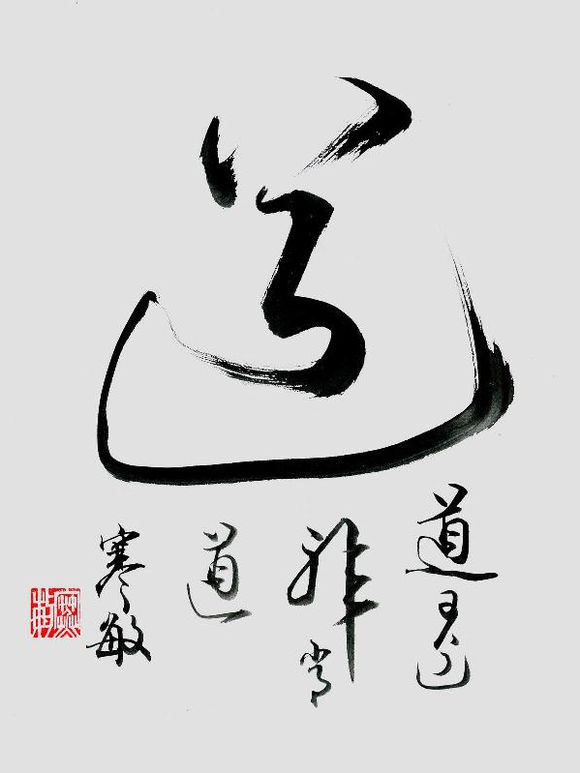 道
道可道
非常
道
寒敏